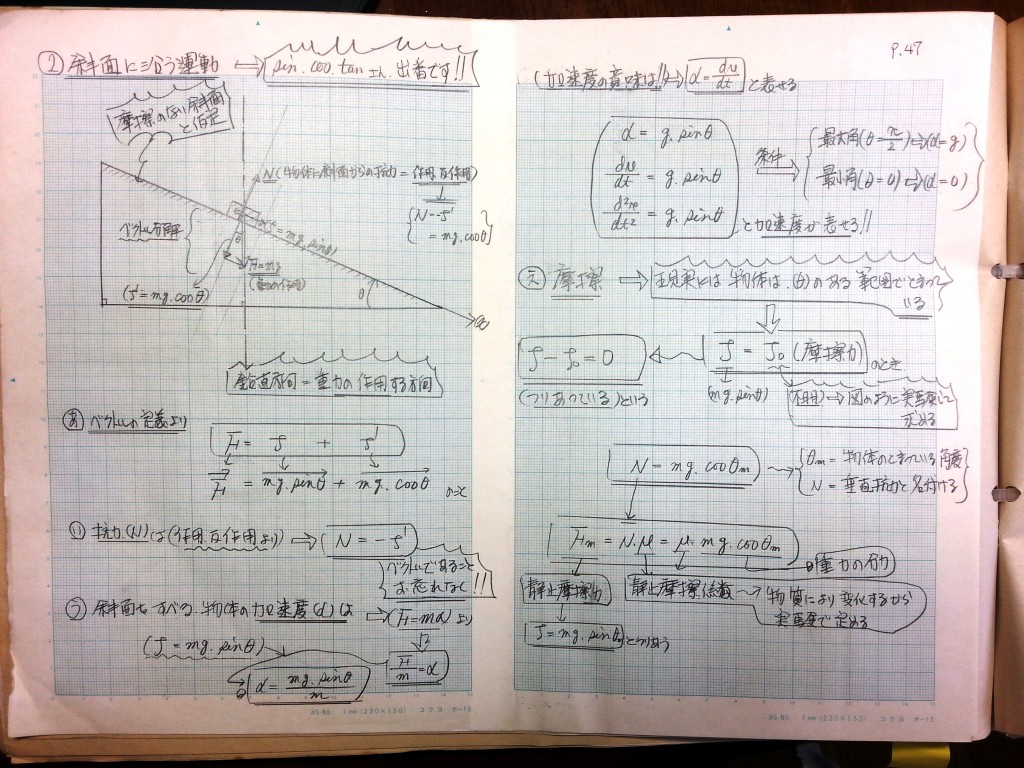 ② 斜面に沿う運動 ⇒ sin.cos.tanさん.出番です!!
摩擦のない斜面
と仮定
N(物体に斜面からの抗力=作用反作用)
{N=-f'
=mg.cosθ}
ベクトル分解
(f=mg.sinθ)
θ
F=mg
(重力の作用)
(f'=mg.cosθ)
θ
鉛直方向=重力の作用する方向
あ ベクトルの定義より
F = f + f'
F = mg.sinθ + mg.cosθ
い 抗力(N)は(作用反作用より) ⇒ N = -f'
ベクトルであること
お忘れなく!!
う 斜面をすべる物体の加速度(α)は → (F=mα より
(f = mg.sinθ)
F/m = α
α = mg.sinθ/m
P.47
(加速度の意味は!!⇒ α = dv/dt と表せる
α = g.sinθ
dv/dt = g.sinθ
d²x/dt² = g.sinθ
条件
⇒
最大角(θ=π/2)⇔(α=g)
最小角(θ=0)⇔(α=0)
と加速度が表せる!!
え 摩擦 ⇒ 現実には物体は.(θ)のある範囲でとまって
いる
f = f₀ (摩擦力) のとき
f - f₀ = 0
(つりあっている)という
(mg.sinθ)
図のように実験して
求める
N = mg.cosθm
θm = 物体のとまっている角度
N = 垂直抗力と名付ける
Fm = N.μ = μ.mg.cosθm
重力の分力
静止摩擦力
静止摩擦係数 → 物質により変化するから
実験で定める
f = mg.sinθ とつりあう
JIS-B5 1mm(220×150) コクヨ ホ-15
JIS-B5 1mm(220×150) コクヨ ホ-15